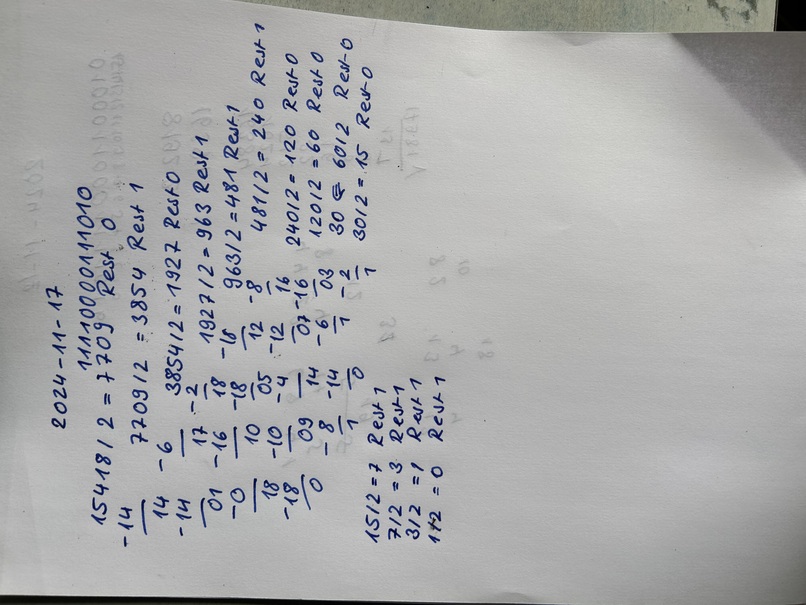 2024-11-17
11110000111010
15418/2 = 7709 Rest 0
-14
7709/2 = 3854 Rest 1
14 -6 3854/2 = 1927 Rest 0
-14 17 -2 1927/2 = 963 Rest 1
01 -16 18 -18 963/2 = 481 Rest 1
-0 10 -18 12 -8 481/2 = 240 Rest 1
18 -10 05 -12 16 240/2 = 120 Rest 0
-18 09 -4 07 -16 120/2 = 60 Rest 0
0 -8 14 -6 03 30 = 60/2 Rest 0
1 -14 1 -2 30/2 = 15 Rest 0
0 1
15/2 = 7 Rest 1
7/2 = 3 Rest 1
3/2 = 1 Rest 1
1/2 = 0 Rest 1